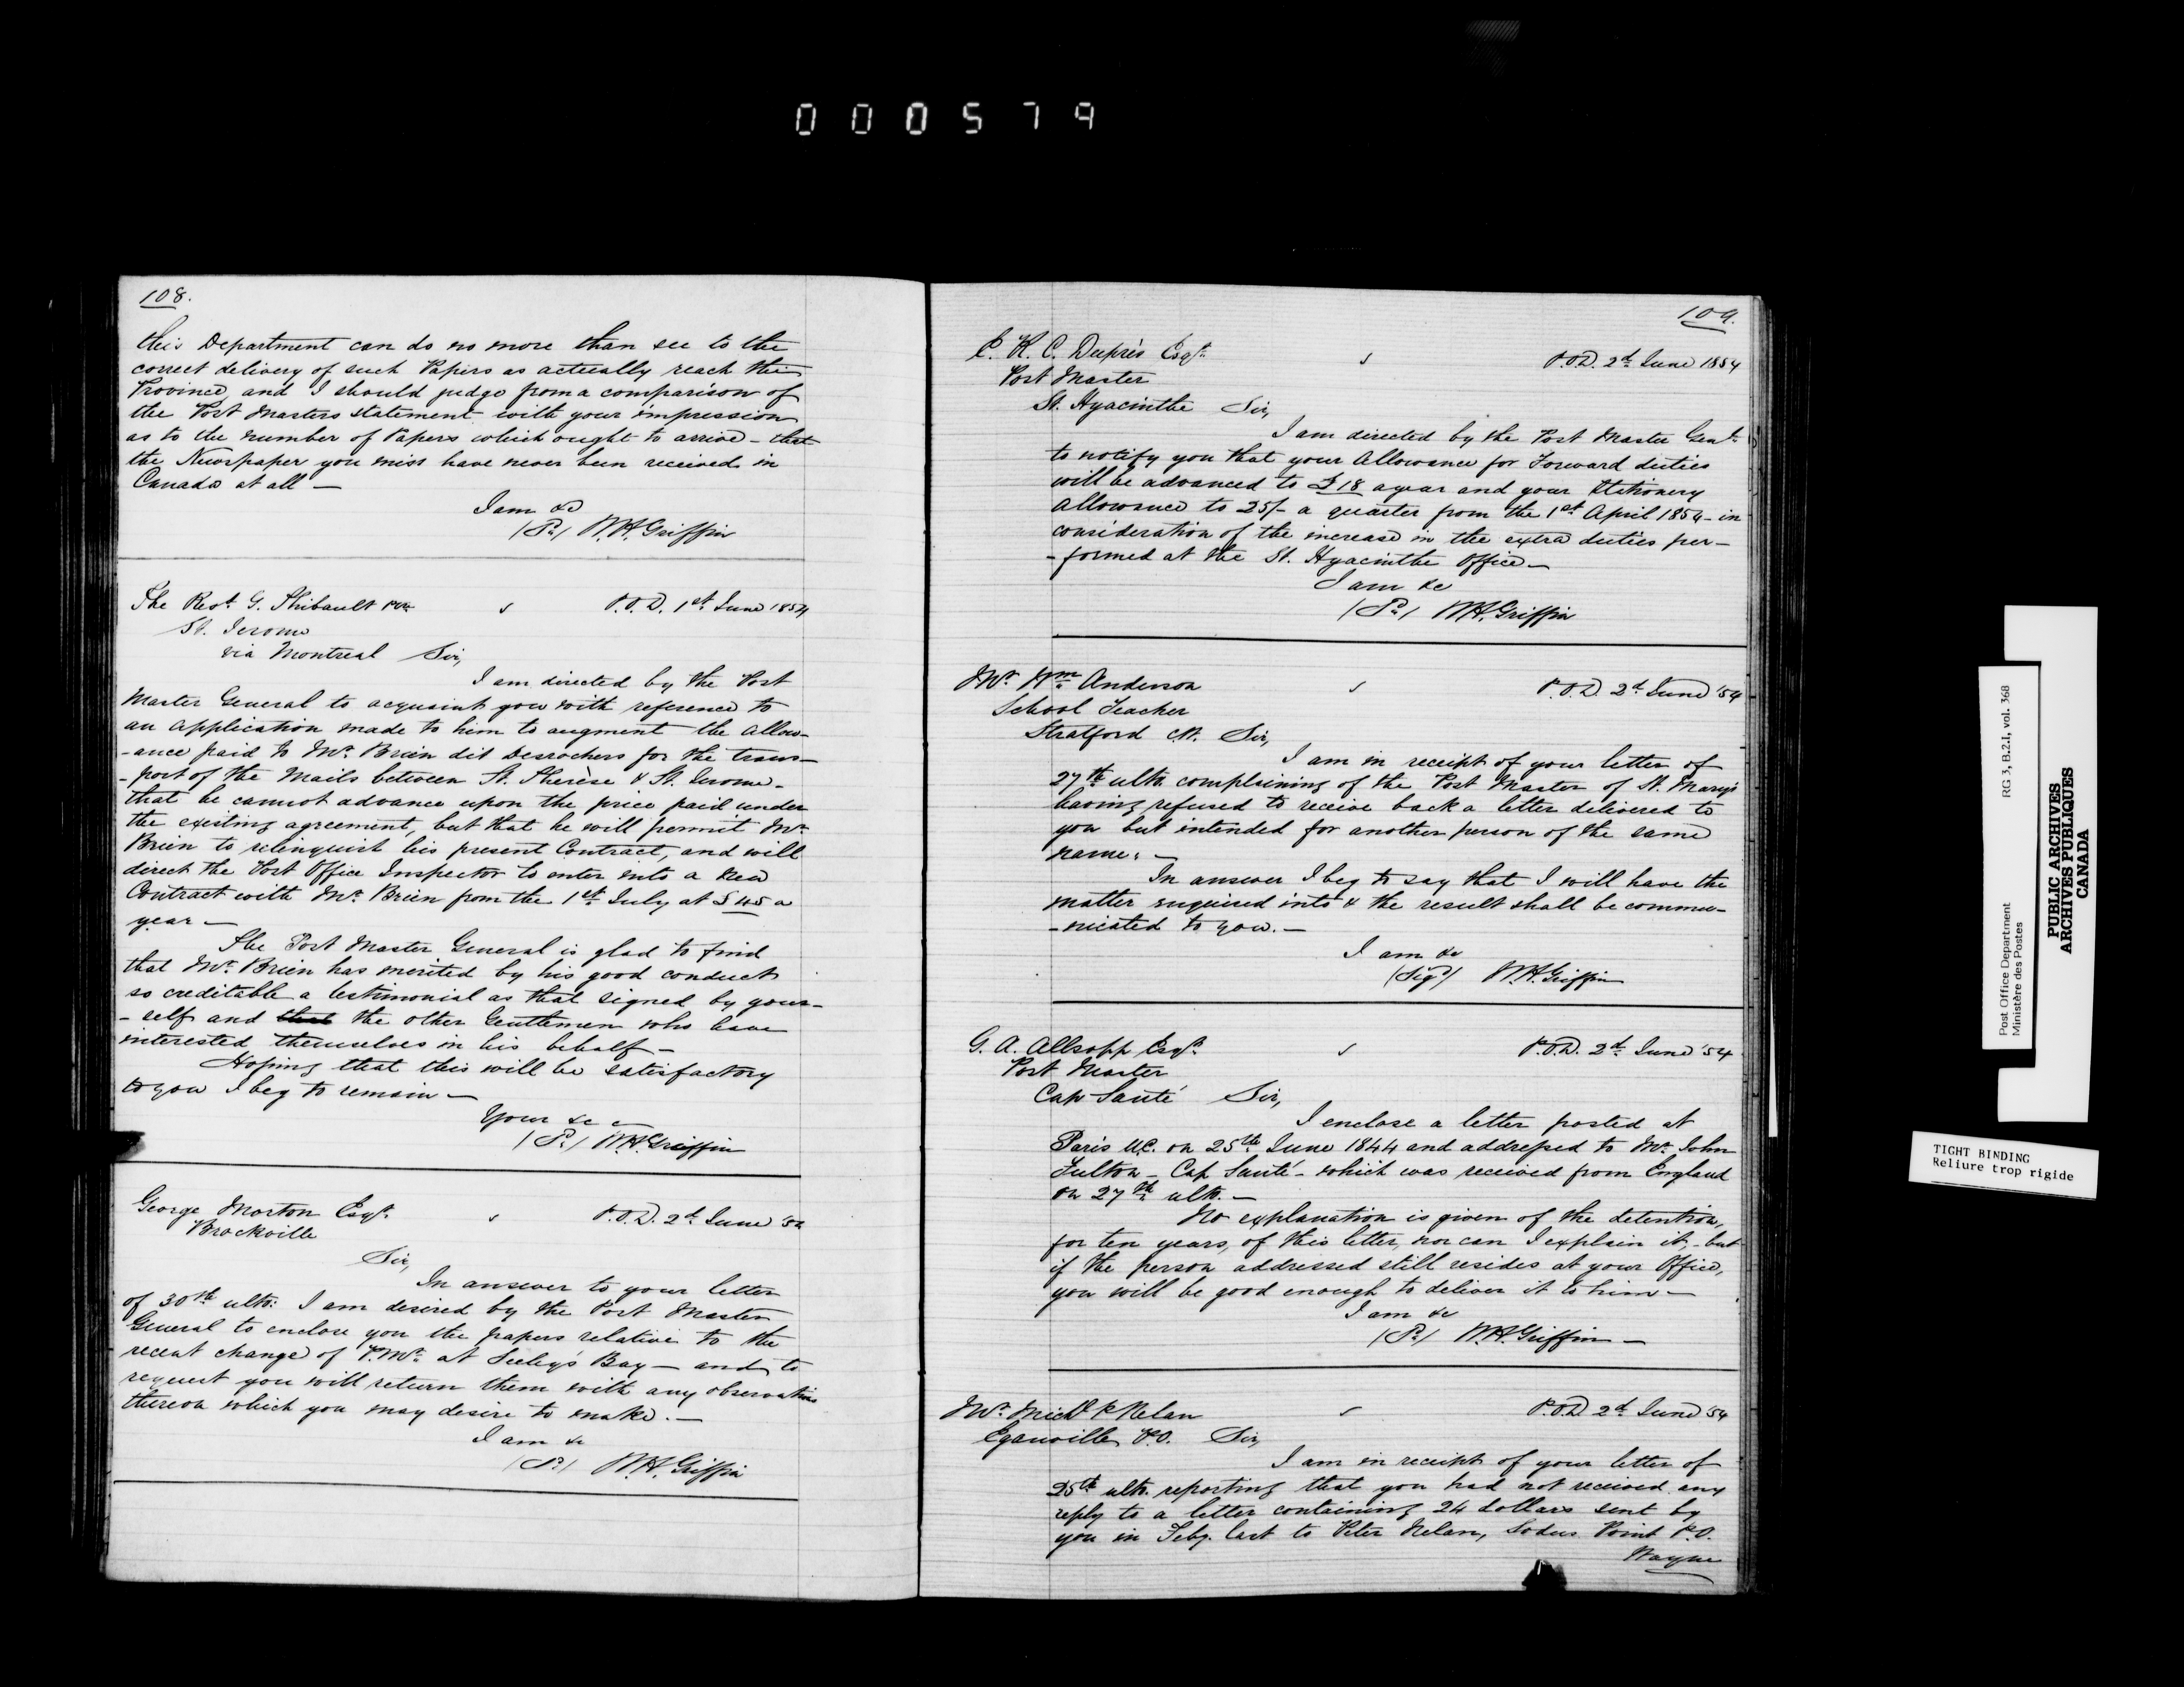 000579
108.
this Department can do no more than see to the
correct delivery of such Papers as actually reach the
Province, and I should judge from a comparison of
the Post Masters statement with your impression
as to the number of Papers which ought to arrive - that
the Newspaper you miss have never been received in
Canada at all —
I am &c
W.H. Griffin
The Revd. G. Thibault
P.O.D. 1st June 1854
St. Jerome
via Montreal Sir,
I am directed by the Post
Master General to acquaint you with reference to
an application made to him to augment the allow-
-ance paid to Mr. Brien dit Desrochers for the trans-
-port of the Mails between St. Therèse & St. Jerome -
that he cannot advance upon the price paid under
the existing agreement, but that he will permit Mr.
Brien to relinquish his present Contract, and will
direct the Post Office Inspector to enter into a new
Contract with Mr. Brien from the 1st July at £45 a
year —
The Post Master General is glad to find
that Mr. Brien has merited by his good conduct
so creditable a testimonial as that signed by your-
-self and that the other Gentlemen who have
interested themselves in his behalf —
Hoping that this will be satisfactory
to you I beg to remain —
Your &c —
W.H. Griffin
George Morton Esqr.
P.O.D. 2d June '54
Brockville
Sir,
In answer to your letter
of 30th ulto: I am desired by the Post Master
General to enclose you the papers relative to the
recent change of P.Mr. at Seeley's Bay — and to
request you will return them with any observations
thereon which you may desire to make. —
I am &c
W.H. Griffin
109.
E. R. C. Duprès Esqr.
P.O.D. 2d June 1854
Post Master
St. Hyacinthe Sir,
I am directed by the Post Master Genl.
to notify you that your Allowance for Forward duties
will be advanced to £18 a year and your Stationery
allowance to 25/- a quarter from the 1st April 1854 - in
consideration of the increase in the extra duties per-
-formed at the St. Hyacinthe Office —
I am &c
W.H. Griffin
Mr. Wm. Anderson
P.O.D. 2d June '54
School Teacher
Stratford C.W. Sir,
I am in receipt of your letter of
27th ulto. complaining of the Post Master of St. Mary's
having refused to receive back a letter delivered to
you but intended for another person of the same
name. —
In answer I beg to say that I will have the
matter enquired into & the result shall be commu-
-nicated to you. —
I am &c
(Sigd) W.H. Griffin
G. A. Allsopp Esqr.
P.O.D. 2d June '54
Post Master
Cap Santé Sir,
I enclose a letter posted at
Paris U.C. on 25th June 1844 and addressed to Mr. John
Fulton - Cap Santé - which was received from England
on 27th ulto. —
No explanation is given of the detention,
for ten years, of this letter, nor can I explain it, - but
if the person addressed still resides at your Office,
you will be good enough to deliver it to him —
I am &c
W.H. Griffin —
Mr. Michl. Nelan
P.O.D. 2d June '54
Eganville P.O. Sir,
I am in receipt of your letter of
25th ulto. reporting that you had not received any
reply to a letter containing 24 dollars sent by
you in Feby. last to Peter Nelan, Sodus Point P.O.
Wayne
Post Office Department RG 3, B.2.I, vol. 368
Ministère des Postes
PUBLIC ARCHIVES
ARCHIVES PUBLIQUES
CANADA
TIGHT BINDING
Reliure trop rigide